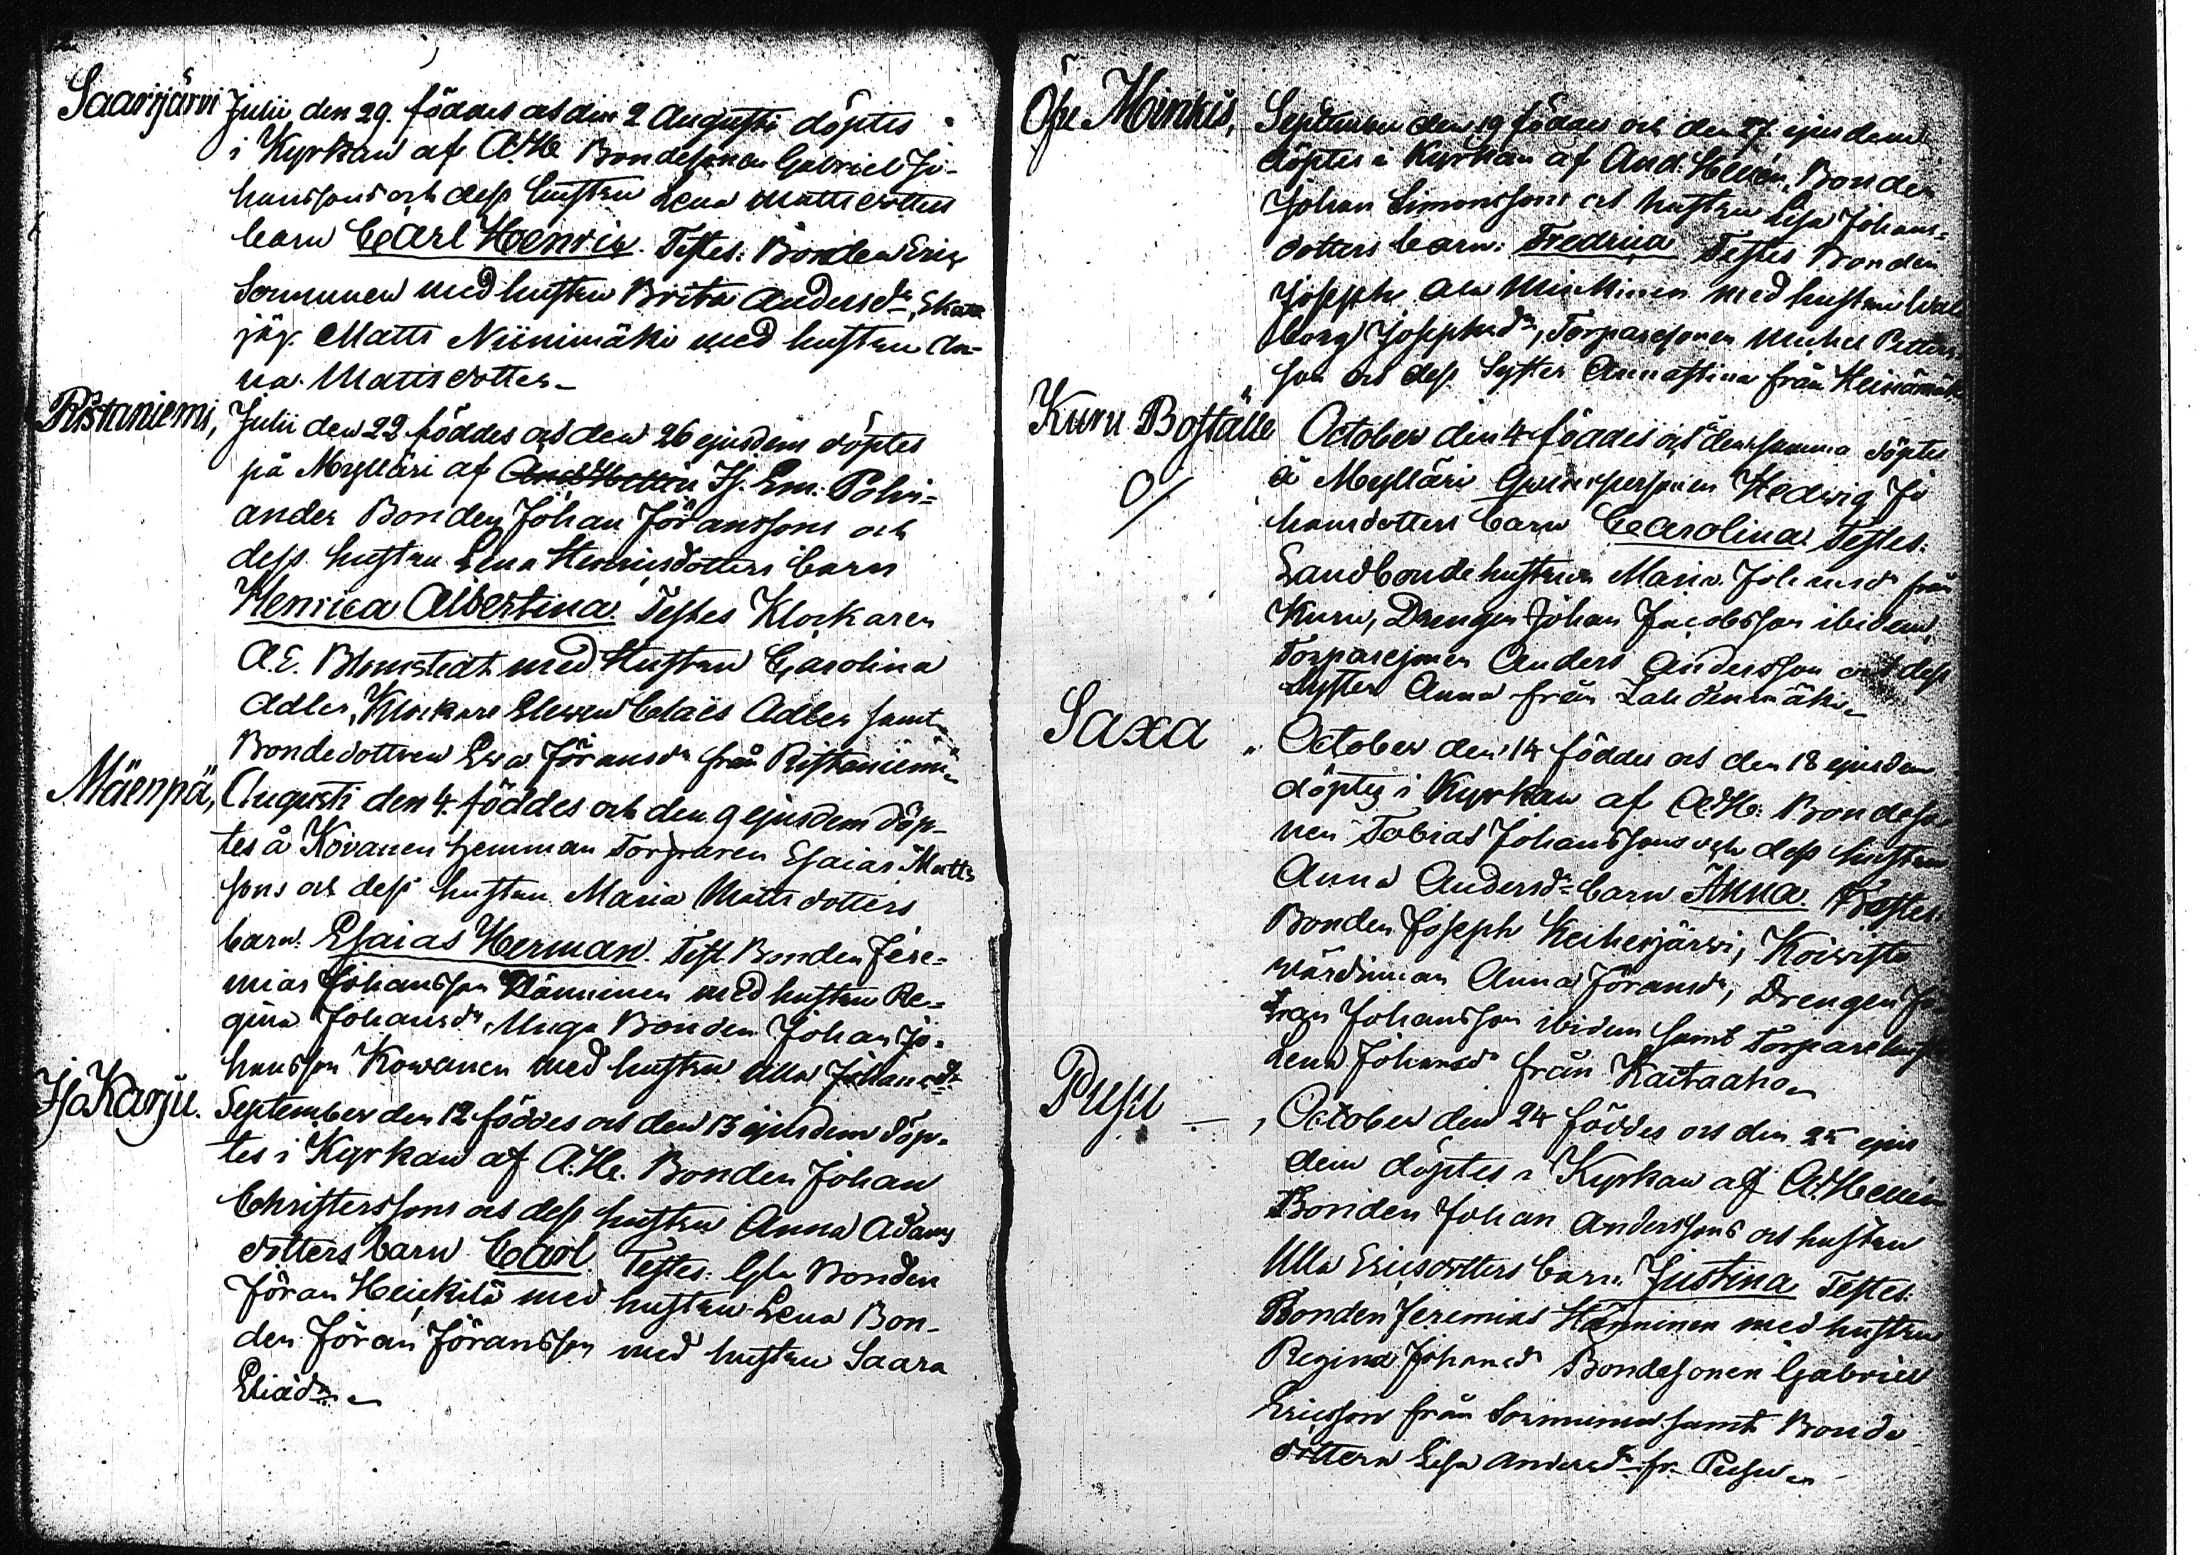 Saarijärvi Julii den 29. föddes och den 2 Augusti döptes
i Kyrkan af A. He. Bondesonen Gabriel Jo-
hanssons och dess hustru Lena Mattsdotters
barn Carl Henric. Testes: Bonden Eric
Sormunen med hustru Brita Andersdr,
jäg. Matts Niinimäki med hustru An-
na Mattsdotter
Ristaniemi, Julii den 22 föddes och den 26 ejusdem döptes
på Mylläri af And. Hellén H. Em. Polvi-
ander Bonden Johan Jöranssons och
dess hustru Lena Henricsdotters barn
Henrica Albertina. Testes Klockaren
A. E. Blomstedt med Hustru Carolina
Adler, Klockare Eleven Claës Adler samt
Bondedottren Eva Jöransdr från Ristaniemi
Mäenpä, Augusti den 4. föddes och den 9 ejusdem döp-
tes å Kovanen hemman Torparen Esaias Matts
sons och dess hustru Maria Mattsdotters
barn. Esaias Herman. Test. Bonden Jere-
mias Johansson Hänninen med hustru Re-
gina Johansdr, Unga Bonden Johan Jo-
hansson Kowanen med hustru Ulla Johansdr
Iso Karju. September den 12 föddes och den 13 ejusdem döp-
tes i Kyrkan af A. He. Bonden Johan
Christerssons och dess hustru Anna Adams
dotters barn Carl. Testes: Gla Bonden
Jöran Heickilä med hustru Lena Bon-
den Jöran Jöransson med hustru Saara
Eliædr
Öfre Minkis, September den 19 föddes och den 27. ejusdem
döptes i Kyrkan af And. Hellén, Bonden
Johan Simonssons och hustru Lisa Johans-
dotters barn: Fredrica Testes Bonden
Joseph Ala Minkinen med hustru Wal
borg Josephsdr, Torparesonen Michel Petters
son och dess Syster Annastina från
Kuru Boställe October den 4 föddes och densamma döptes
å Mylläri Qvinspersonen Hedwig Jo
hansdotters barn Carolina. Testes:
Landbonde hustrun Maria Johansdr från
Kuru, Drengen Johan Jacobsson ibidem,
Torparesonen Anders Andersson och dess
syster Anna från Lahdenmäki
Saxa October den 14 föddes och den 18 ejusdem
döptes i Kyrkan af A. He: Bondeso
nen Tobias Johanssons och dess hustru
Anna Andersdr barn Anna. Testes.
Bonden Joseph Keihesjärvi, Koivisto
värdinnan Anna Jöransdr, Drengen Jo
han Johansson ibidem samt Torpare hustr
Lena Johansdr från Kaitaaho
Pusu October den 24 föddes och den 25 ejus
dem döptes i Kyrkan af A. Hellén
Bonden Johan Anderssons och hustru
Ulla Ericsdotters barn. Justina Testes.
Bonden Jeremias Hänninen med hustru
Regina Johansdr Bondesonen Gabriel
Ericsson från Sormunen samt Bonde
dottern Lisa Andersdr fr. Pusu